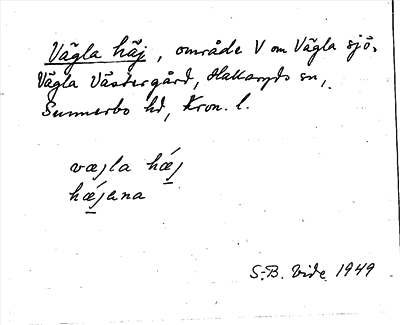 Vägla häj, område V om Vägla sjö.
Vägla Västergård, Hallaryds sn,
Sunnerbo hd, Kron. l.
væjla hǽj
hǽjana
S.-B. Vide 1949